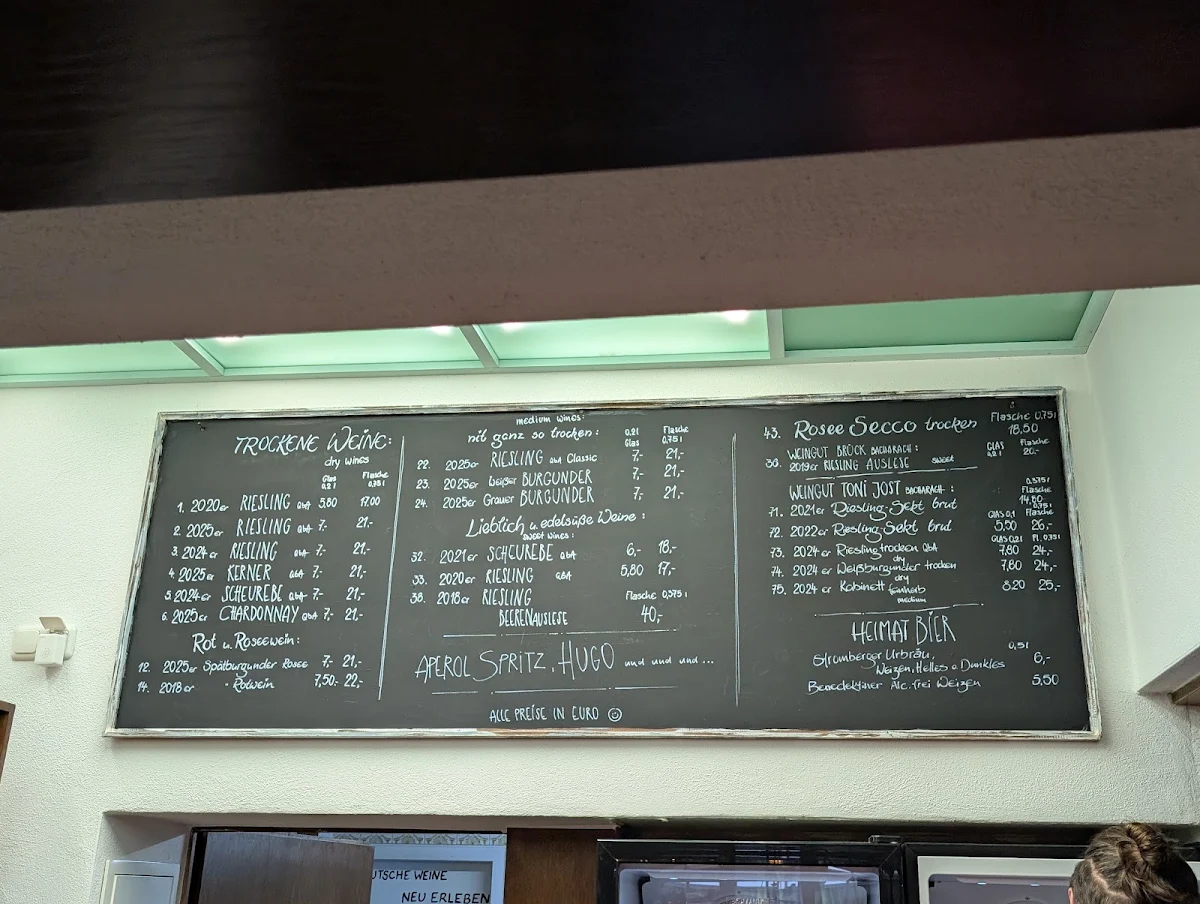 TROCKENE WEINE:
dry wines
Glas 0,2 l Flasche 0,75 l
1. 2020er RIESLING QbA 5,80 17,00
2. 2025er RIESLING QbA 7,- 21,-
3. 2024er RIESLING QbA 7,- 21,-
4. 2025er KERNER QbA 7,- 21,-
5. 2024er SCHEUREBE QbA 7,- 21,-
6. 2025er CHARDONNAY QbA 7,- 21,-
Rot u. Roseewein:
12. 2025er Spätburgunder Rosee 7,- 21,-
14. 2018er - Rotwein 7,50,- 22,-
medium wines:
nit ganz so trocken:
0,2l Glas Flasche 0,75 l
22. 2025er RIESLING QbA Classic 7,- 21,-
23. 2025er Weißer BURGUNDER 7,- 21,-
24. 2025er Grauer BURGUNDER 7,- 21,-
Lieblich u. edelsüße Weine:
sweet wines:
32. 2021er SCHEUREBE QbA 6,- 18,-
33. 2020er RIESLING QbA 5,80 17,-
38. 2018er RIESLING Flasche 0,375 l
BEERENAUSLESE 40,-
APEROL SPRITZ, HUGO und und und...
ALLE PREISE IN EURO ☺
43. Rosee Secco trocken Flasche 0,75l 18,50
WEINGUT BRÜCK BACHARACH: GLAS 0,2 l Flasche
30. 2019er RIESLING AUSLESE SWEET 20,-
WEINGUT TONI JOST BACHARACH: 0,375 l Flasche
71. 2021er Riesling-Sekt brut 14,80
GLAS 0,1 0,75 l Flasche
72. 2022er Riesling-Sekt brut 5,50 26,-
GLAS 0,2 l Fl. 0,75 l
73. 2024er Riesling trocken QbA 7,80 24,-
dry
74. 2024er Weißburgunder trocken 7,80 24,-
dry
75. 2024er Kabinett feinherb 8,20 25,-
medium
HEIMAT BIER
0,5 l
Stromberger Urbräu,
Weizen, Helles o. Dunkles 6,-
Benediktiner Alc. frei Weizen 5,50
UTSCHE WEINE
NEU ERLEBEN